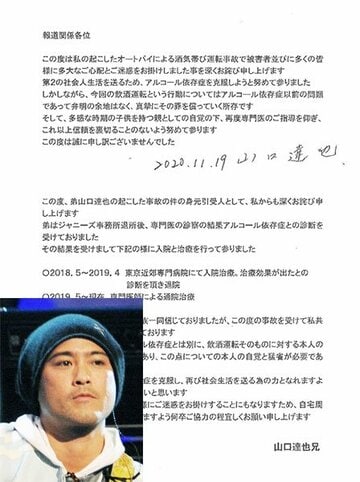 報道関係各位
この度は私の起こしたオートバイによる酒気帯び運転事故で被害者並びに多くの皆
様に多大なご心配とご迷惑をお掛けしました事を深くお詫び申し上げます
第2の社会人生活を送るため、アルコール依存症を克服しようと努めて参りました
しかしながら、今回の飲酒運転という行期についてはアルコール依存症以前の問題
であって弁明の余地はなく、真摯にその罪を償っていく所存です
そして、多感な時期の子供を持つ親としての自覚の下、再度専門医のご指導を仰ぎ、
これ以上信頼を裏切ることのないよう努めて参ります
この度は誠に申し訳ございませんでした
2020.11.19 山口達也
この度、弟山口達也の起こした事故の件の身元引受人として、私からも深くお詫び申
し上げます
弟はジャニーズ事務所退所後、専門医の診察の結果アルコール依存症との診断を
受けておりました
その結果を受けまして下記の様に入院と治療を行って参りました
○2018.5~2019.4 東京近郊専門病院にて入院治療。治療効果が出たとの
診断を頂き退院
○2019.5~現在 専門医師による通院治療
族一同信じておりましたが、この度の事故を受けて私共
ル依存症とは別に、飲酒運転そのものに対する本人の
あり、この点についての本人の自覚と猛省が必要であ
症を克服し、再び社会生活を送る為の力となれますよ
いと思います
様にご迷惑をお掛けすることにもなりますため、自宅周
ますよう何卒ご協力の程宜しくお願い申し上げます
山口達也兄